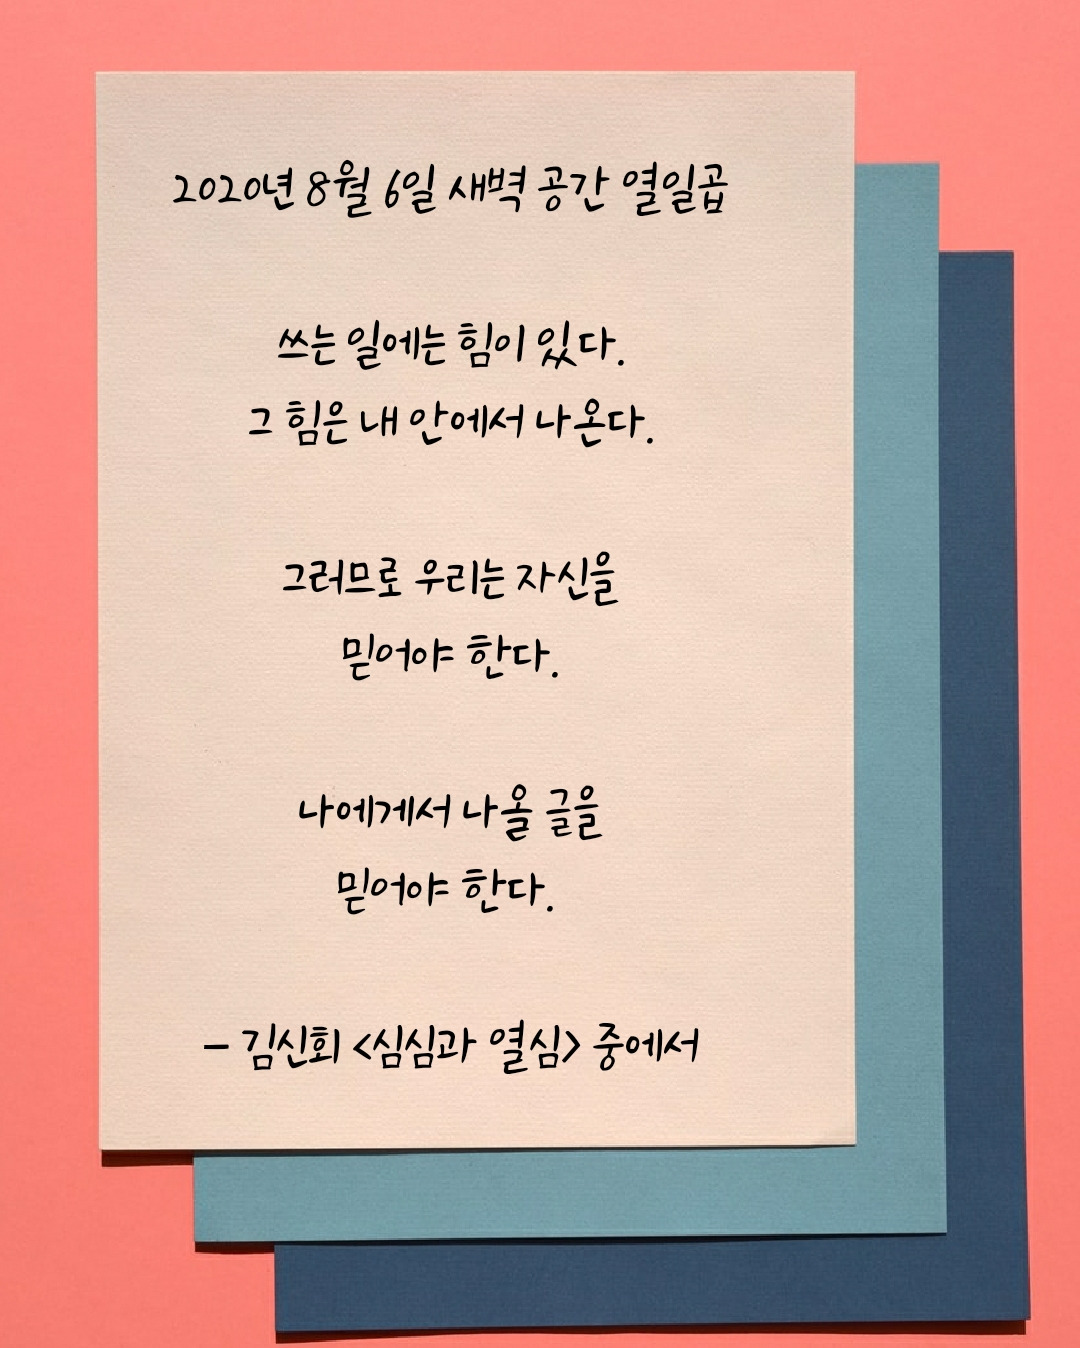 2020년 8월 6일 새벽 공간 열일곱
쓰는 일에는 힘이 있다.
그 힘은 내 안에서 나온다.
그러므로 우리는 자신을
믿어야 한다.
나에게서 나올 글을
믿어야 한다.
- 김신회 <심심과 열심> 중에서